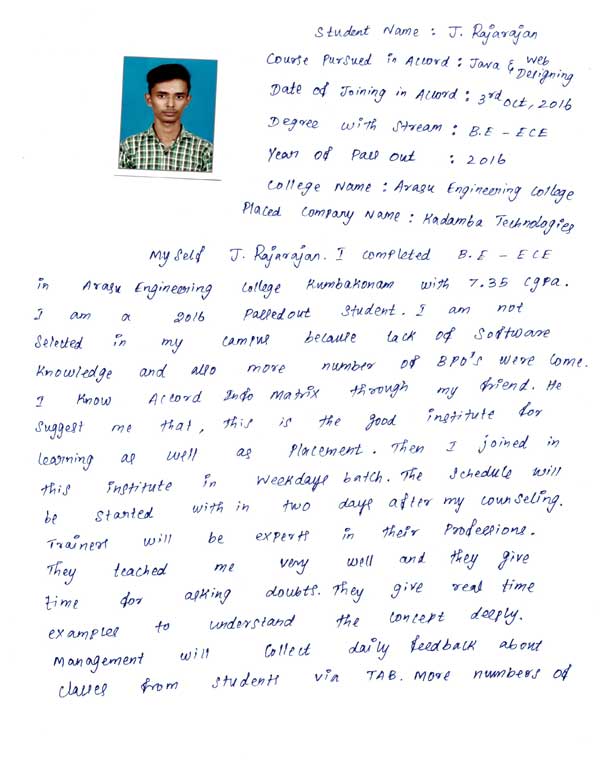 Student Name : J. Rajarajan
Course Pursued in Accord : Java & Web Designing
Date of Joining in Accord : 3rd oct, 2016
Degree with Stream : B.E - ECE
Year of Pass out : 2016
College Name : Arasu Engineering College
Placed Company Name : Kadamba Technologies
My self J. Rajarajan. I completed B.E - ECE
in Arasu Engineering College Kumbakonam with 7.35 cgpa.
I am a 2016 Passedout Student. I am not
Selected in my campus because lack of Software
knowledge and also more number of BPO's were come.
I know Accord Info Matrix through my friend. He
Suggest me that, this is the good institute for
learning as well as Placement. Then I joined in
this institute in Weekdays batch. The Schedule will
be Started with in two days after my counseling.
Trainers will be experts in their Professions.
They teached me very well and they give
time for asking doubts. They give real time
examples to understand the concept deeply.
Management will Collect daily feedback about
classes from students via TAB. More numbers of